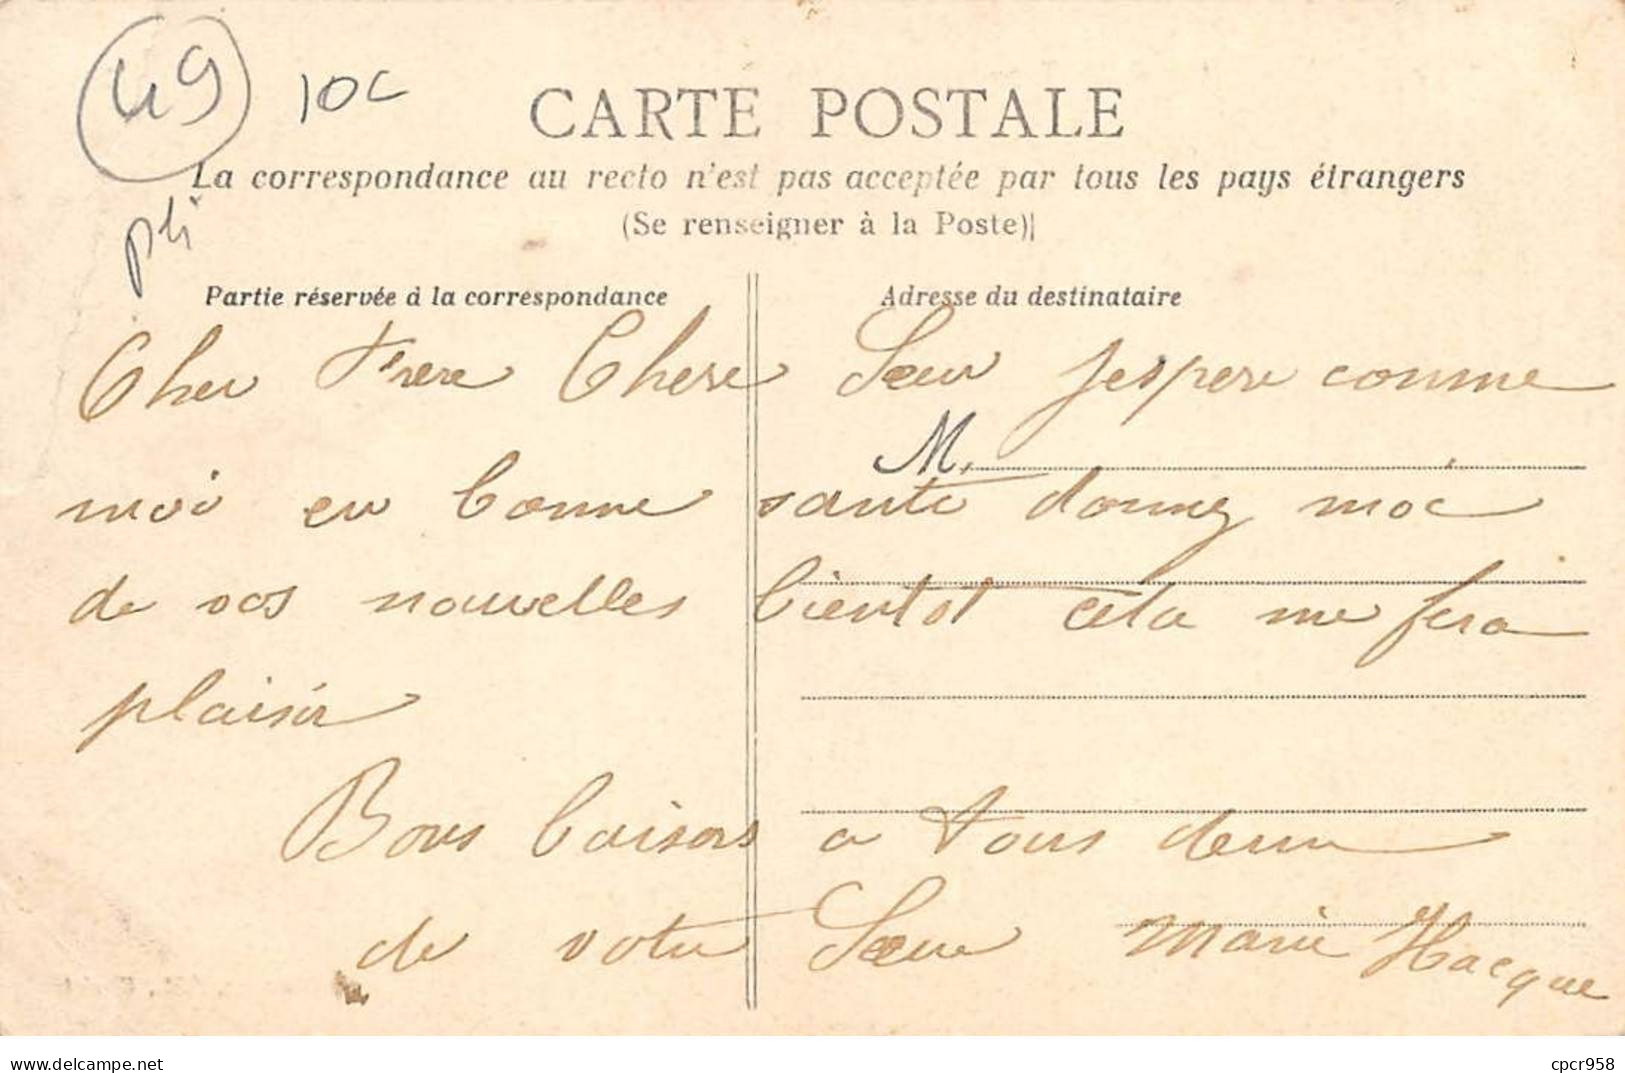 49 10c
CARTE POSTALE
La correspondance au recto n'est pas acceptée par tous les pays étrangers
pli
(Se renseigner à la Poste)
Partie réservée à la correspondance Adresse du destinataire
Cher Frere Chere Sœur Jespere comme
M.
moi en bonne sante donnez moi
de vos nouvelles bientot cela me fera
plaisir
Bons baisers a tous deux
de votre Sœur Marie Hacque
www.delcampe.net cpcr958